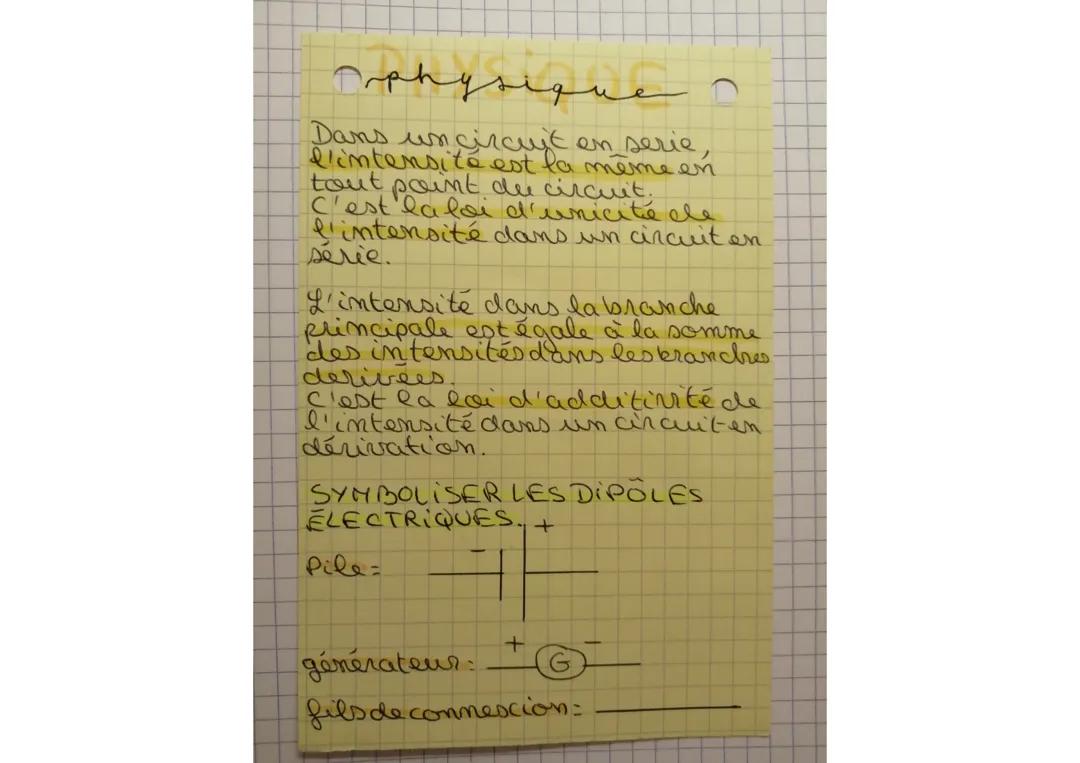 PHYSIQUE
physique
Dans un circuit en serie,
l'intensité est la même en
tout point du circuit.
C'est la loi d'unicité de
l'intensité dans un circuit en
série.
L'intensité dans la branche
principale est égale à la somme
des intensités dans les branches
derivées.
C'est la loi d'additivité de
l'intensité dans un circuit en
dérivation.
SYMBOLISER LES DIPÔLES
ÉLECTRIQUES.
+
-
Pile=
+ -
générateur: G
fils de connexion=